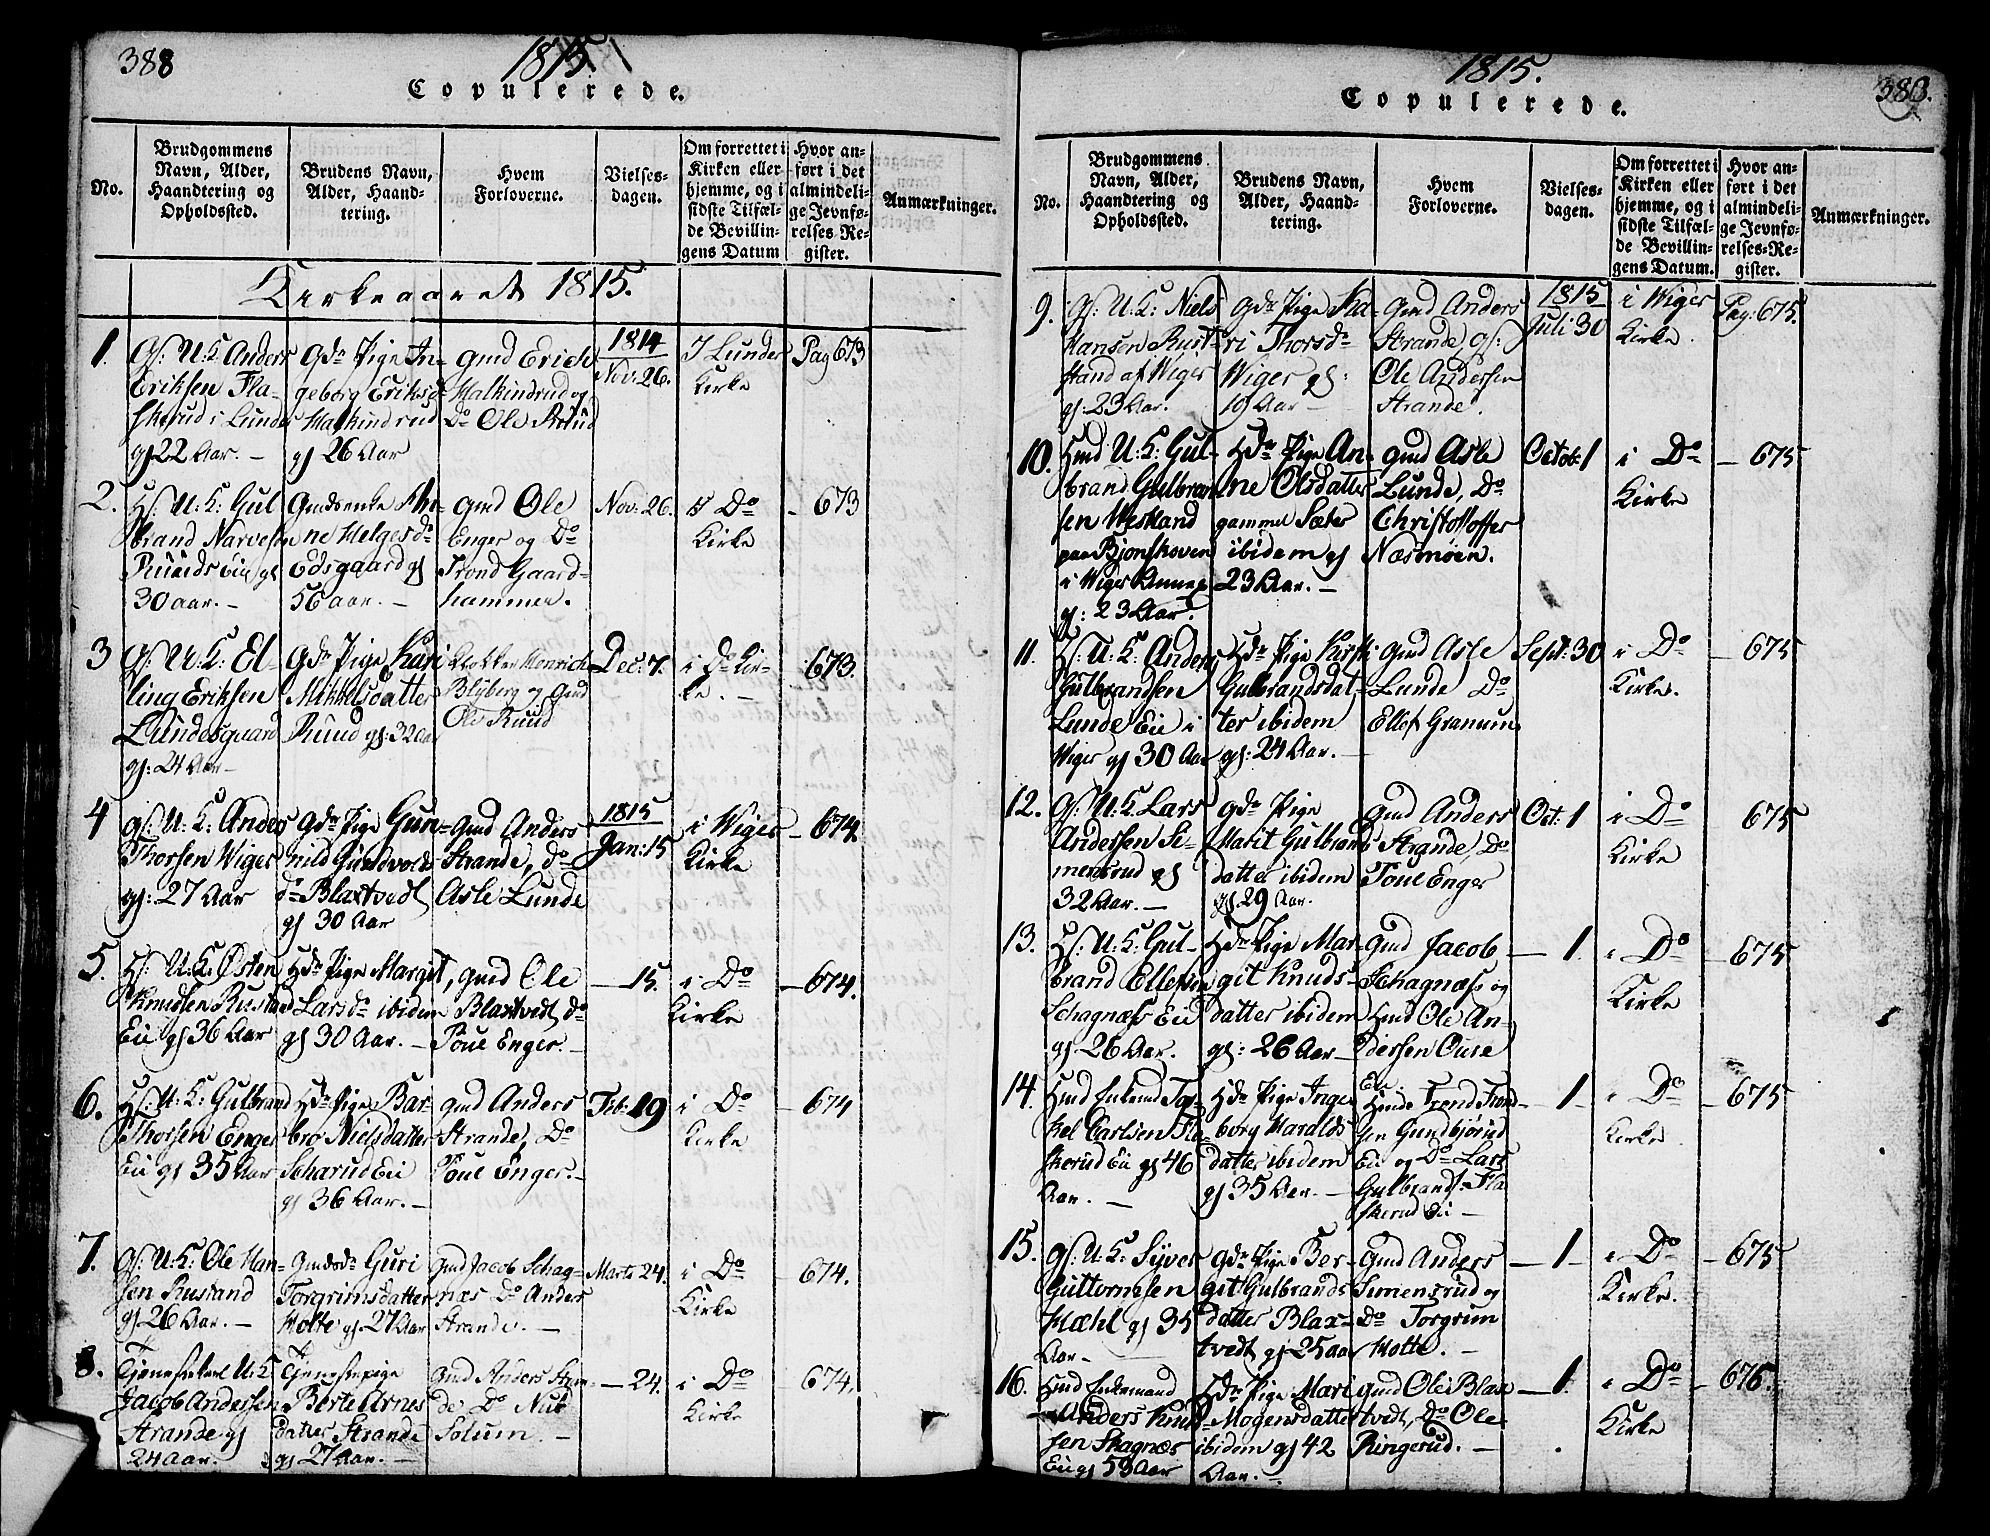 388
1815
Copulerede.
No.
Brudgommens
Navn, Alder,
Haandtering og
Opholdssted.
Brudens Navn,
Alder, Haand-
tering.
Hvem
Forloverne.
Vielses-
dagen.
Om forrettet i
Kirken eller
hjemme, og i
sidste Tilfæl-
de Bevillin-
gens Datum
Hvor an-
ført i det
almindeli-
ge Jevnfø-
relses Re-
gister.
Anmærkninger.
Kirkeaaret 1815.
1.
Gs: U: K Anders
Eriksen Fla-
skerud i Lunder
gs 22 Aar. —
Gdr Pige In-
geborg Eriksd
Halkindrud
gs 26 Aar
Gmd Erich
Halkindrud og
Do Ole Ruud
1814
Nov: 26.
I Lunder
Kirke
Pag 673
2.
Hs: U: K: Gul
brand Narvesen
Ruuds Eie gs
30 aar. —
Gmdsenke An-
ne Helgesdr
Edsgaard gs
56 aar. —
Gmd Ole
Enger og Do
Trond Gaard-
hammer.
Nov: 26.
i Do
Kirke
- 673
3
Gs: U: K: El-
ling Eriksen
Lundesgaard
gs: 24 Aar —
Gdr Pige Kari
Mikkelsdatter
Ruud gs: 32 aar
Klokker Henrich
Blyberg og Gmd
Ole Ruud
Dec: 7.
i Do Kir-
ke. —
673.
4
Gs: U: K: Anders
Thorsen Wiger
gs: 27 Aar
Gdr Pige Gun-
hild Guldvolds
dr Blaxtvedt
gs 30 Aar
Gmd Anders
Strande, do
Asle Lunde
1815
Jan: 15
i Wiger
Kirke
- 674.
5.
Hs: U: K: Østen
Knudsen Rustand
Eie gs 36 Aar
Hdr Pige Margit,
Larsdr ibidem
gs 30 Aar. —
Gmd Ole
Blaxtvedt, do
Poul Enger. —
— 15.
i Do
Kirke
— 674.
6.
Hs: U: K: Gulbrand
Thorsen Enger
Eie gs 35 Aar
Hdr Pige Bar-
bro Nielsdatter
Scharud Eie
gs 36 Aar. —
Gmd Anders
Strande, Do
Poul Enger. —
Feb: 19
i Do
Kirke
- 674
7.
Gs: U: K: Ole Han-
sen Rustand
gs 26 Aar. —
Gmdsdr Guri
Torgrimsdatter
Holte gs. 27 Aar
Gmd Jacob Schag-
næs Do Anders
Strande. —
Marts 24.
i Do
Kirke
- 674.
8.
Tjenestekarl U: K
Jacob Andersen
Strande gs
24 aar.
Tjenestepige
Berte Arnes
datter Strande
gs 27 Aar. —
Gmd Anders Stran-
de Do Nub
Solum. —
— 24.
i Do
Kirke
674.
1815.
388.
Copulerede.
No.
Brudgommens
Navn, Alder,
Haandtering og
Opholdssted.
Brudens Navn,
Alder, Haand-
tering.
Hvem
Forloverne.
Vielses-
dagen.
Om forrettet i
Kirken eller
hjemme, og i
sidste Tilfæl-
de Bevillin-
gens Datum.
Hvor an-
ført i det
almindeli-
ge Jevnfø-
relses-Re-
gister.
Anmærkninger.
9.
Gs: U: K: Niels
Hansen Rust-
stand af Wiger
gs: 23 Aar.
Gdr Pige Ka-
ri Thorsdr
Wiger gs:
Aar —
Gmd Anders
Strande, gs:
Ole Andersen
Strande.
1815
Juli 30
i Wiger
Kirke
Pag: 675.
10.
Hmd U: K: Gul-
brand Gulbran-
sen Westland
paa Bjonskoven
i Wiger Annex
gs: 23 Aar.
Hdr Pige An-
ne Olsdatter
gammel Sæter
ibidem gs
23 Aar. —
Gmd Asle
Lunde, Do
Christoffer
Næsmoen.
Octob: 1
i Do
Kirke
— 675
11.
Hs: U: K: Anders
Gulbrandsen
Lunde Eie i
Wiger gs 30 Aar
Hdr Pige Kirsti
Gulbrandsdat-
ter ibidem
gs: 24 Aar. —
Gmd Asle
Lunde Do
Ellef Granum
Sept: 30
i Do
Kirke.
— 675
12.
Gs: U: K Lars
Andersen Si-
mensrud gs
32 Aar. —
Gdr Pige
Marit Gulbrands
datter ibidem
gs 29 Aar.
Gmd Anders
Strande, Do
Poul Enger
Oct: 1
i Do
Kirke
675
13.
Hs: U: K: Gul-
brand Ellefsen
Schagnæs Eie
gs 26 Aar.
Hdr Pige Mar-
git Knuds-
datter ibidem
gs: 26 Aar —
Gmd Jacob
Schagnæs og
Hmd Ole An-
dersen Oure
Eie.
— 1.
i Do
Kirke
— 675
14.
Hmd Enkemd Tar-
kel Carlsen Fla-
skerud Eie gs 46
Aar. —
Hdr Pige Inge
borg Haralds
datter ibidem
gs 35 Aar. —
Hmde Trend Trond
sen Gundbjørud
Eie og Do Lars
Gulbrands. Fla
skerud Eie —
— 1 —
i Do
Kirke
— 675
15.
Gs: U: K: Syver
Guttormsen
Mæhl gs 35
Aar —
Gdr Pige Ber-
git Gulbrands
datter Blax-
tvedt gs 25 aar
Gmd Anders
Simensrud og
Do Torgrim
Holte. —
— 1 —
i Do
Kirke.
— 675
16.
Hmd Enkemand
Anders Knud-
sen Skagnæs
Eie gs 53 Aar
Hdr Pige Mari
Mogensdatter
ibidem gs 42
Aar. —
Gmd Ole Blax
tvedt, Do Ole
Ringerud. —
— 1.
i Do
Kirke
- 676.